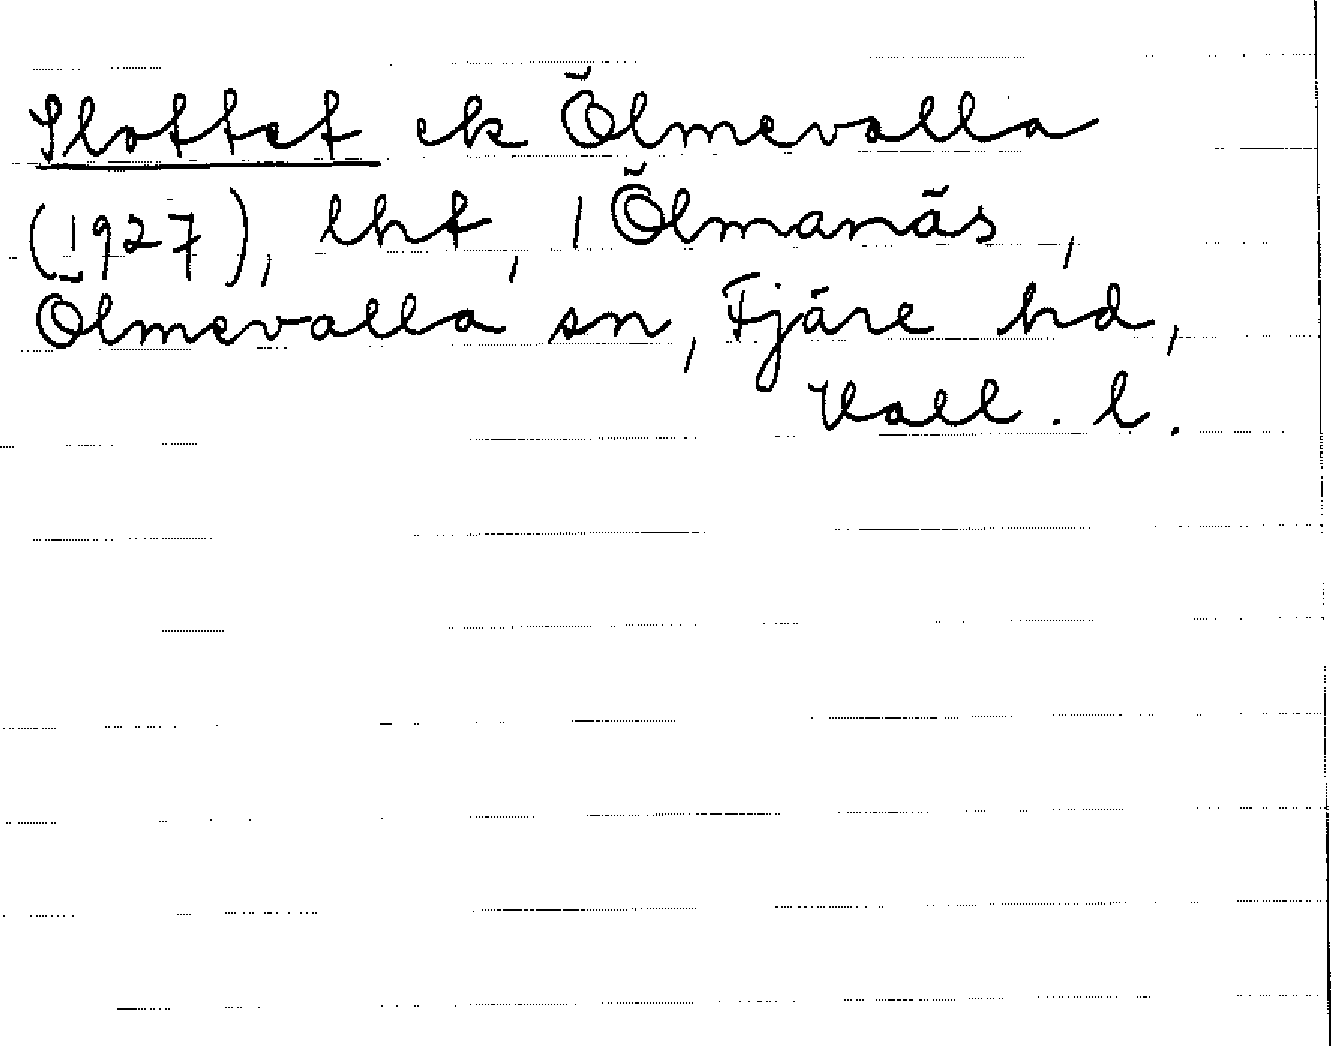 Slottet ek Ölmevalla
(1927), lht, i Ölmanäs,
Ölmevalla sn, Fjäre hd,
Hall. l.